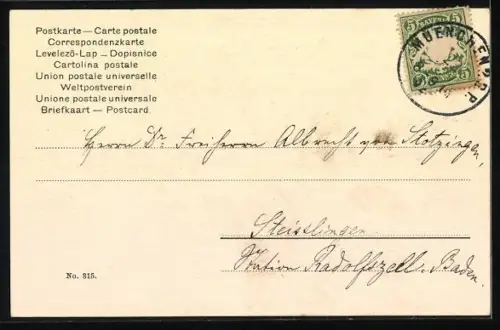 Postkarte — Carte postale
Correspondenzkarte
Levelező-Lap — Dopisnice
Cartolina postale
Union postale universelle
Weltpostverein
Unione postale universale
Briefkaart — Postcard.
5 BAYERN 5
5 5
MUENCHEN 2 B.P.
Herrn Dr Freiherrn Albrecht von Stotzingen,
Steisslingen
Station Radolfszell. Baden.
No. 315.